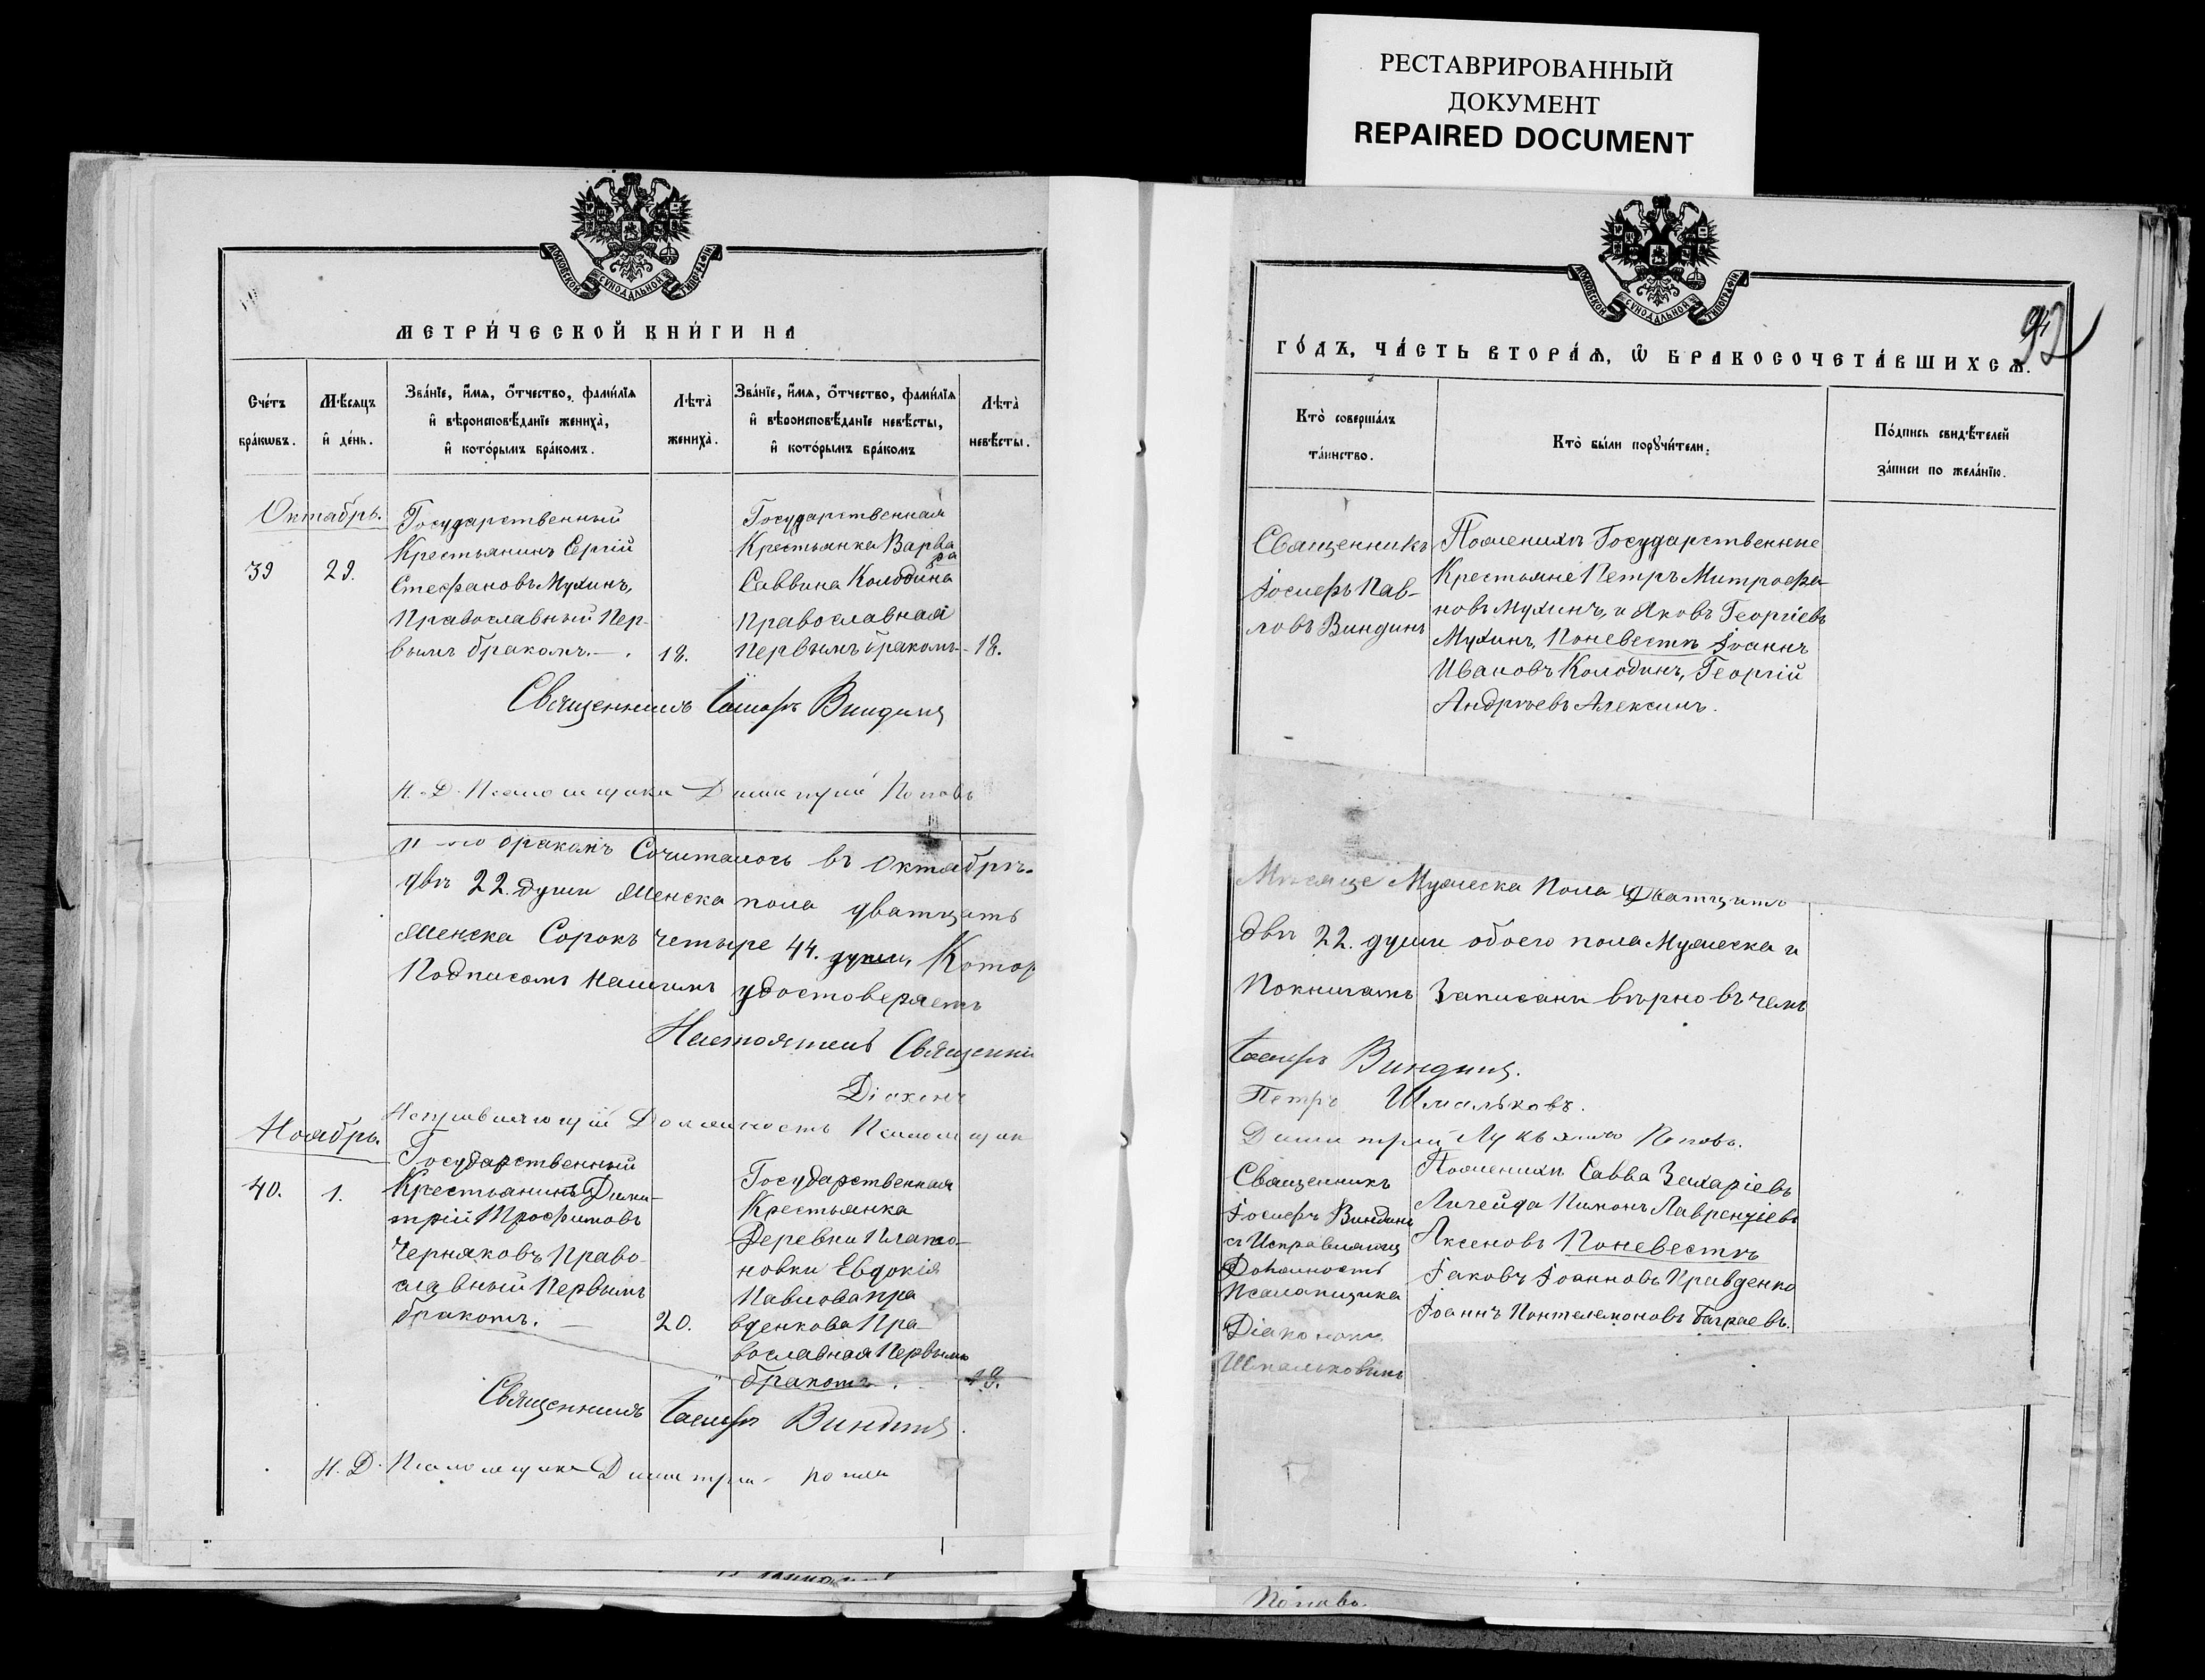 РЕСТАВРИРОВАННЫЙ
ДОКУМЕНТ
REPAIRED DOCUMENT
МОСКОВСКОЙ СУНОДАЛЬНОЙ ТИПОГРАФІИ
МЕТРИ́ЧЕСКОЙ КНИ́ГИ НА
Сче́тъ бра́кѡвъ.
Мѣ́сяцъ и҆ де́нь.
Зва́нїе, и҆́мѧ, ѻ҆́тчество, фами́лїѧ и҆ вѣроисповѣ́данїе жениха̀, и҆ кото́рымъ бра́комъ.
Лѣ́та жениха̀.
Зва́нїе, и҆́мѧ, ѻ҆́тчество, фами́лїѧ и҆ вѣроисповѣ́данїе невѣ́сты, и҆ кото́рымъ бра́комъ
Лѣ́та невѣ́сты.
Октябрь.
39
29.
Государственный
Крестьянинъ Сергій
Стефановъ Мухинъ,
Православный Пер-
вымъ бракомъ.
18.
Государственная
Крестьянка Варва
ра
Саввина Колодина
Православная
Первымъ бракомъ
18.
Священникъ Іосифъ Виндинъ
И. Д. Псаломщика Димитрій Поповъ
бракомъ Сочиталось въ Октябрѣ
двѣ 22. души Женска пола дватцать
Женска Сорокъ четыре 44. души, Котор
Подписомъ Нашимъ удостоверяемъ
Настоятель Священни
Діаконъ
Исправляющій Должность Псаломщик
Ноябрь
40.
1.
Государственный
Крестьянинъ Дими-
трій Трофимовъ
Черняковъ Право-
славный Первымъ
бракомъ.
20.
Государственная
Крестьянка
Деревни Плато-
новки Евдокія
Павлова Пра
вденкова Пра-
вославная Первымъ
бракомъ.
19.
Священникъ Іосифъ Виндинъ.
И. Д. Псаломщика Димитрій
МОСКОВСКОЙ СУНОДАЛЬНОЙ ТИПОГРАФІИ
ГО́ДЪ, ЧА́СТЬ ВТОРА́Ѧ, Ѡ҆ БРАКОСОЧЕТА́ВШИХСѦ.
Кто̀ соверша́лъ та́инство.
Кто̀ бы́ли порꙋчи́тели:
По́дпись свидѣ́телей за́писи по жела́нїю.
Священникъ
Іосифъ Пав-
ловъ Виндинъ
Пожениху Государственные
Крестьяне Петръ Митрофа-
новъ Мухинъ, и Яковъ Георгіевъ
Мухинъ, Поневестѣ Іоаннъ
Ивановъ Колодинъ, Георгій
Андрѣевъ Алексинъ.
Мѣсяце Мужеска Пола Дватцать
двѣ 22. души обоего пола Мужеска и
Покнигамъ Записаны вѣрно въ чемъ
Іосифъ Виндинъ.
Петръ Шмальковъ.
Димитрій Лукьяновъ Поповъ.
Священникъ
Іосифъ Виндинъ
съ Исправляющ
Должность
Псаломщика
Діакономъ
Шмальковымъ
Пожениху Савва Захаріевъ
Лавренціевъ
Аксеновъ Поневестѣ
Іаковъ Іоанновъ Правденко
Іоаннъ Пантелемоновъ
Попова